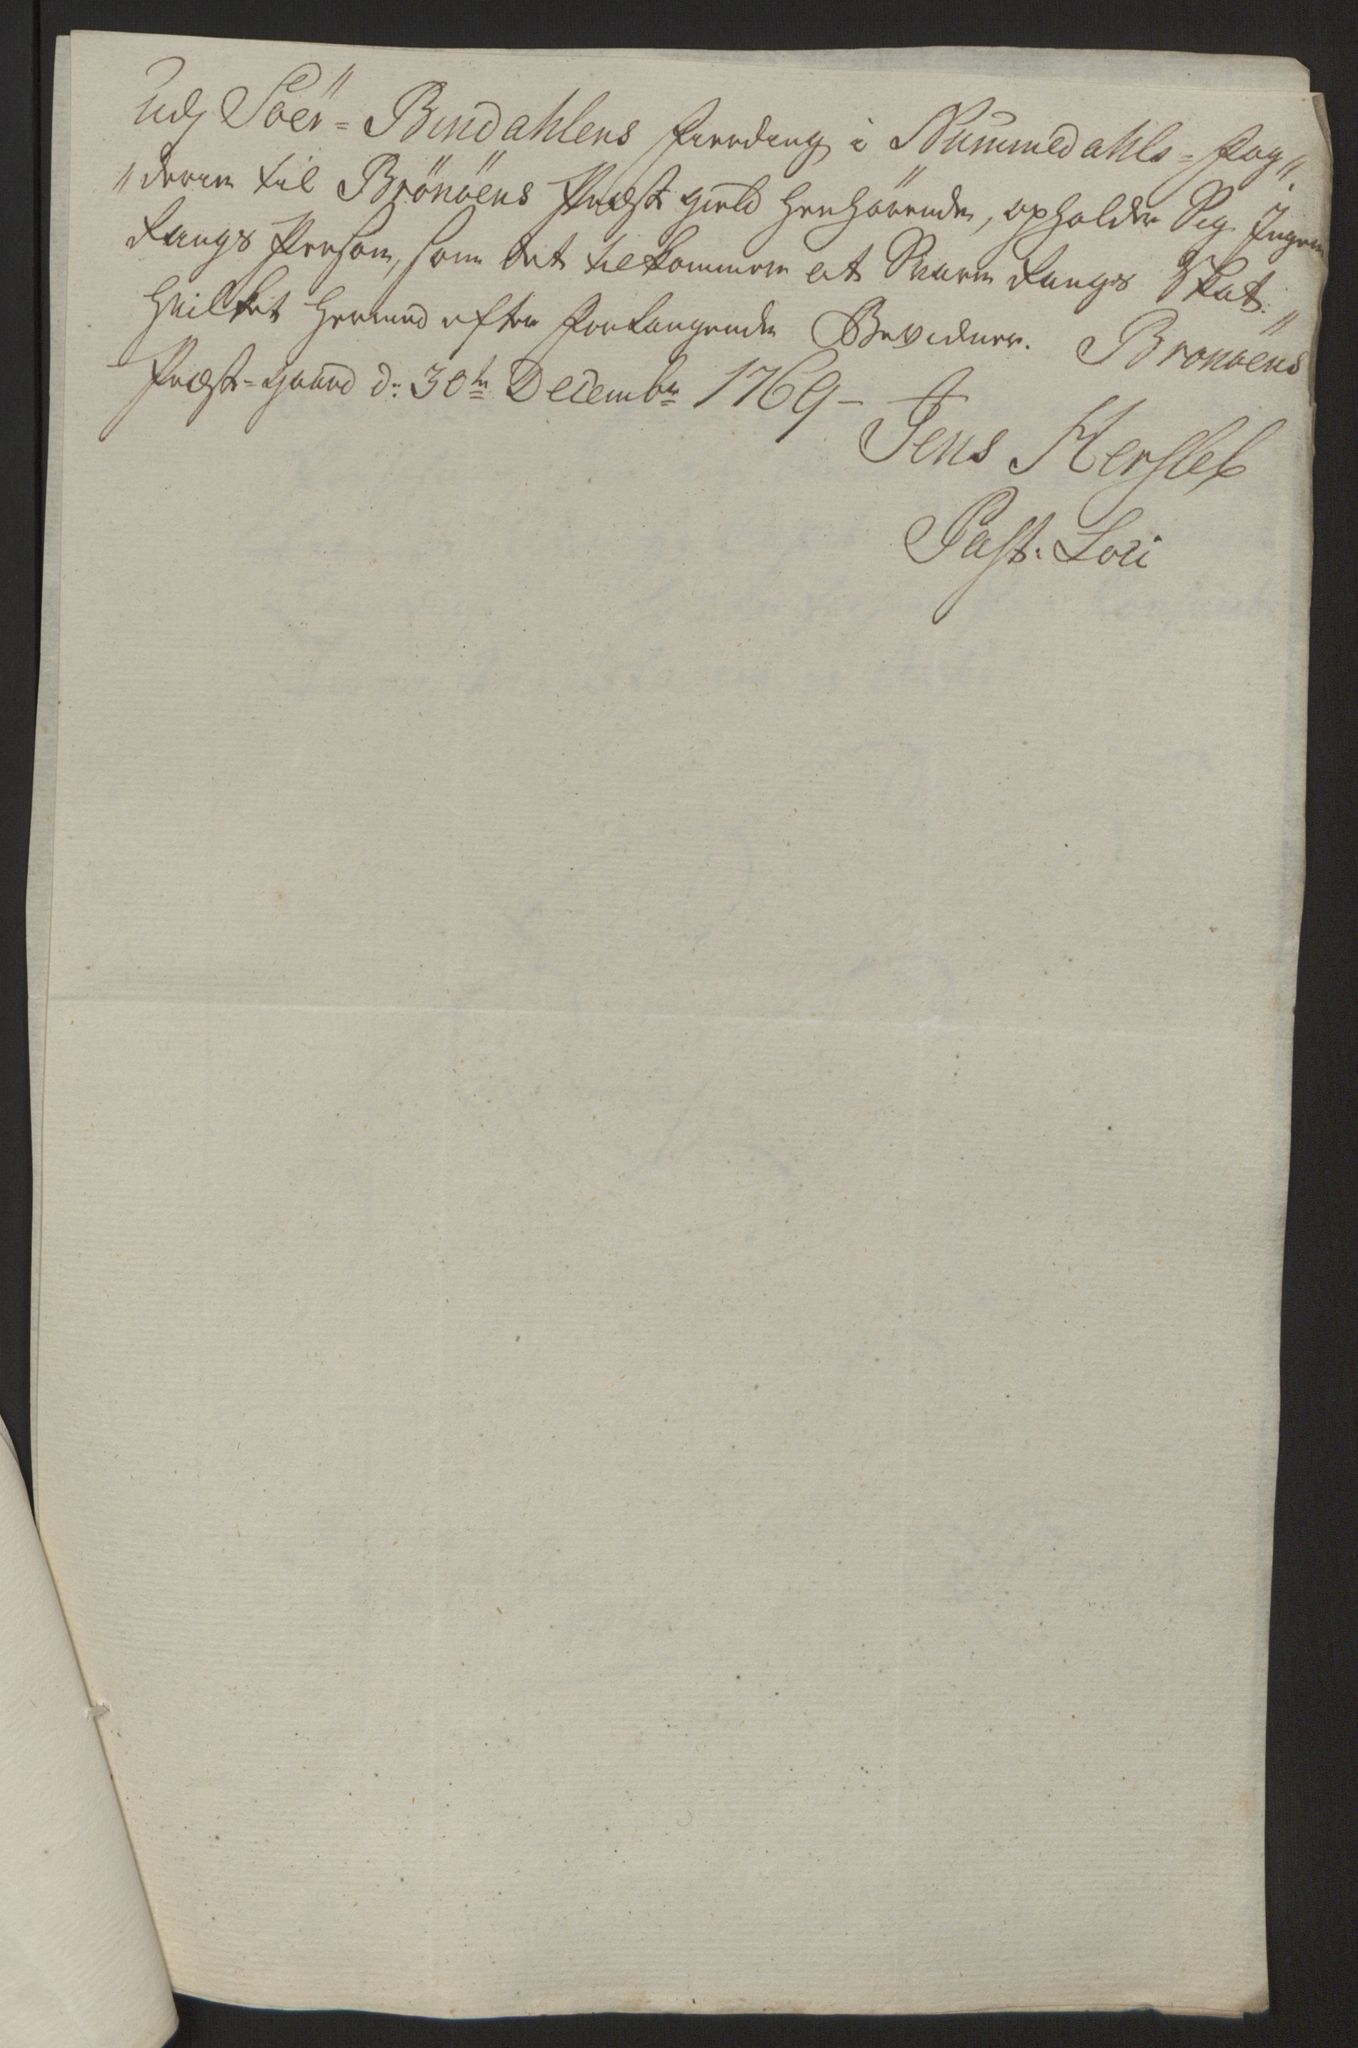 Udj Söer- Bindahlens Fierding i Nummedahls- Fog„
„derie til Brönöens Præste gield henhörende, opholder Sig Ingen
Rangs Person, som det tilkommer at Svare Rangs Skat.
Hvilket hermed efter Forlangende Bevidner. Brönöens
Præste-gaard d: 30te Decembr 1769 –
Jens Hersleb
Past. Loci